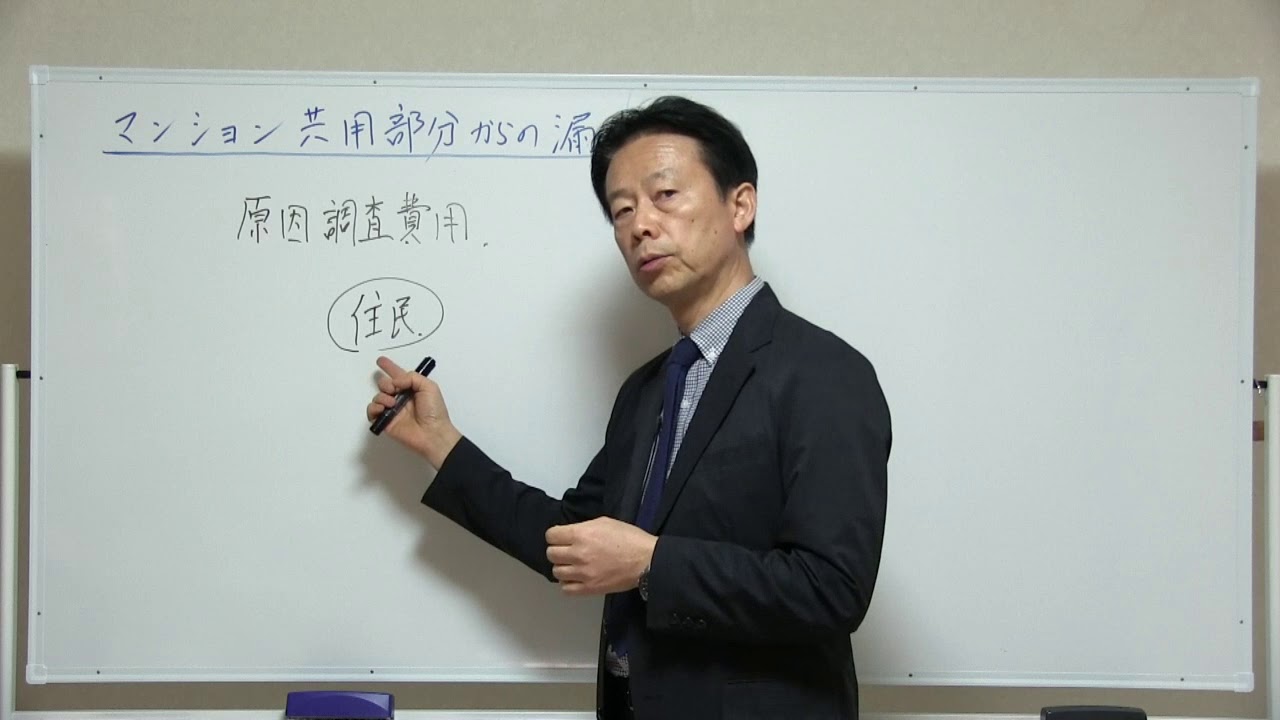 マンション共用部分からの漏
原因調査費用.
住民.